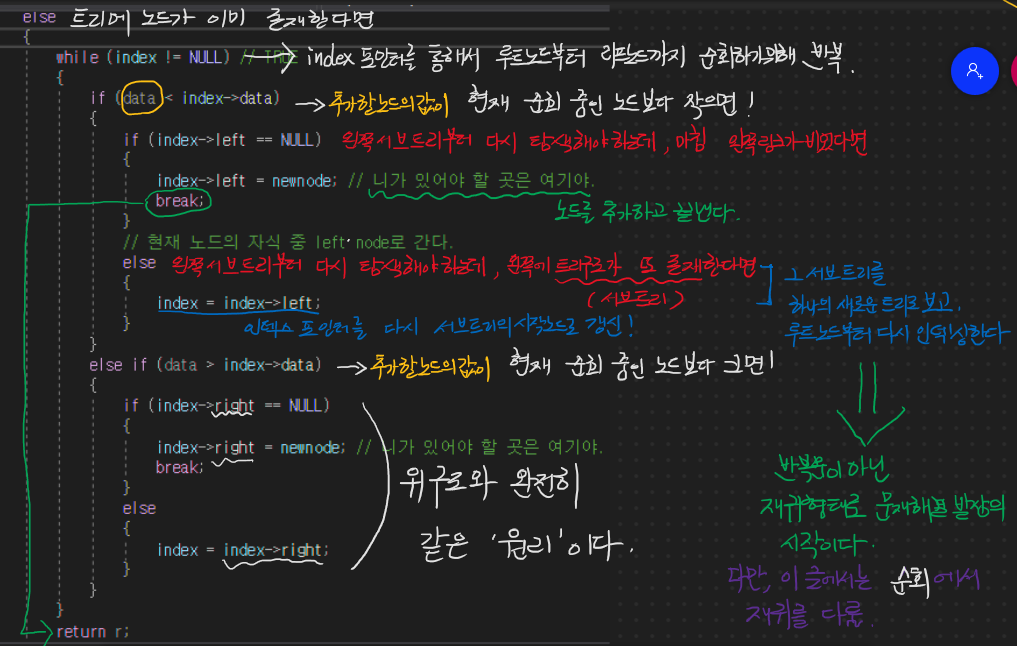 else 트리에 노드가 이미 존재한다면
{
while (index != NULL) // TRUE → index 포인터를 통해서 루트노드부터 리프노드까지 순회하기위해 반복.
{
if (data < index->data) → 추가할노드의값이 현재 순회 중인 노드보다 작으면!
{
if (index->left == NULL) 왼쪽서브트리부터 다시 탐색해야하는데, 마침 왼쪽링크가 비었다면
{
index->left = newnode; // 니가 있어야 할 곳은 여기야.
break; 노드를 추가하고 끝낸다.
}
// 현재 노드의 자식 중 left node로 간다.
else 왼쪽서브트리부터 다시 탐색해야하는데, 왼쪽에 트리구조가 또 존재한다면
(서브트리)
{
index = index->left;
인덱스 포인터를 다시 서브트리의 시작노드로 갱신!
}
그 서브트리를
하나의 새로운 트리로 보고,
루트노드부터 다시 인덱싱한다
}
else if (data > index->data) → 추가할노드의값이 현재 순회 중인 노드보다 크면!
{
if (index->right == NULL)
{
index->right = newnode; // 니가 있어야 할 곳은 여기야.
break;
}
else
{
index = index->right;
}
}
}
return r;
위구조와 완전히
같은 '원리'이다.
반복문이 아닌
재귀형태로 문제해결 발상의
시작이다.
다만, 이 글에서는 순회에서
재귀를 다룸.